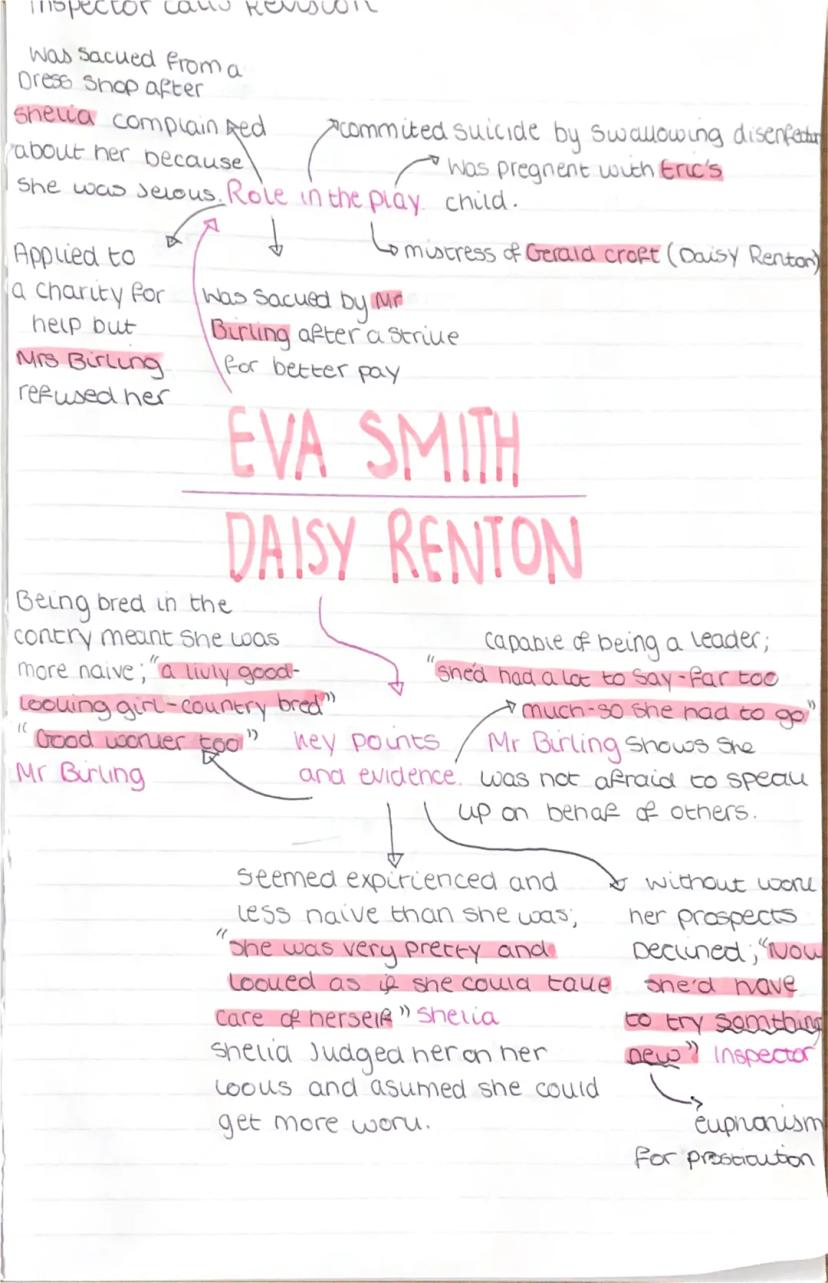 Inspector calls Revision
Was sacued from a
Dress shop after
shelia complained
about her because
she was jelous.
commited suicide by swallowing disenfectan
Was pregnent with Eric's
child.
Role in the play.
mistress of Gerald croft (Daisy Renton)
Applied to
a charity for
help but
Mrs Birling
refused her
Was sacued by Mr
Birling after a strike
for better pay
EVA SMITH
DAISY RENTON
Being bred in the
contry meant she was
more naive; "a livly good-
looking girl-country bred"
"Good worker too"
Mr Birling
key points
and evidence.
capable of being a leader;
"she'd had a lot to say-far too
much-so she had to go"
Mr Birling shows she
was not afraid to speak
up on behaf of others.
seemed expirienced and
less naive than she was;
"she was very pretty and
looked as if she could take
care of herself" shelia
shelia Judged her on her
looks and asumed she could
get more work.
without work
her prospects
Declined; "Now
she'd have
to try somthing
new" Inspector
euphonism
for prostitution